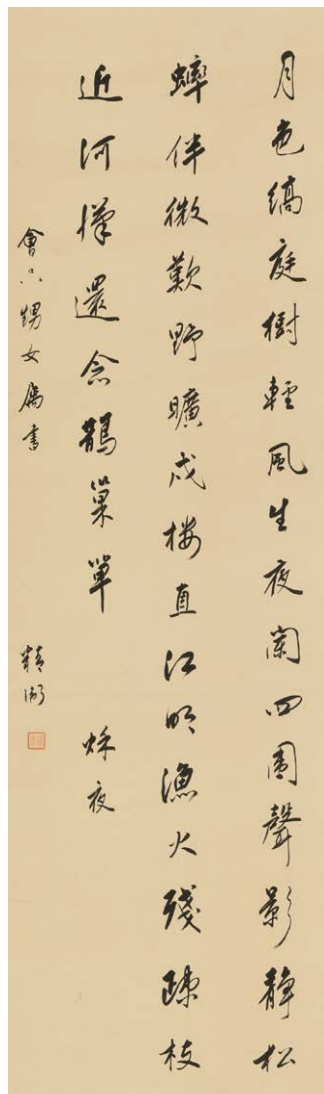 月色縞庭樹輕風生夜闌四圍聲影靜松
蟀伴微歎野曠戍樓直江明漁火殘疎枝
近河漢還念鵲巢單 秌夜
會六甥女屬書 精衛